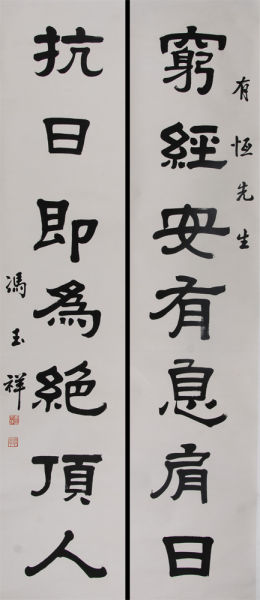 有恆先生
窮經安有息肩日
抗日即為絕頂人
馮玉祥